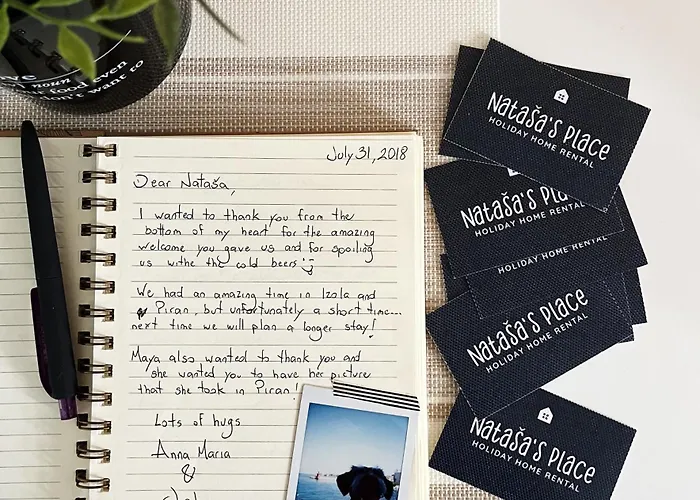 ve
noun
food even
don't want to
July 31, 2018
Dear Nataša,
I wanted to thank you from the
bottom of my heart for the amazing
welcome you gave us and for spoiling
us withe the cold beers
We had an amazing time in Izola and
Piran, but unfortunately a short time...
next time we will plan a longer stay!
Maya also wanted to thank you and
she wanted you to have her picture
that she took in Piran!
Lots of hugs
Anna Maria
&
Nataša's Place
HOLIDAY HOME RENTAL
Nataša's Place
HOLIDAY HOME RENTAL
HOLIDAY HOME RENTAL
Nataša's Place
HOLIDAY HOME RENTAL
Nataša's Place
HOLIDAY HOME RENTAL